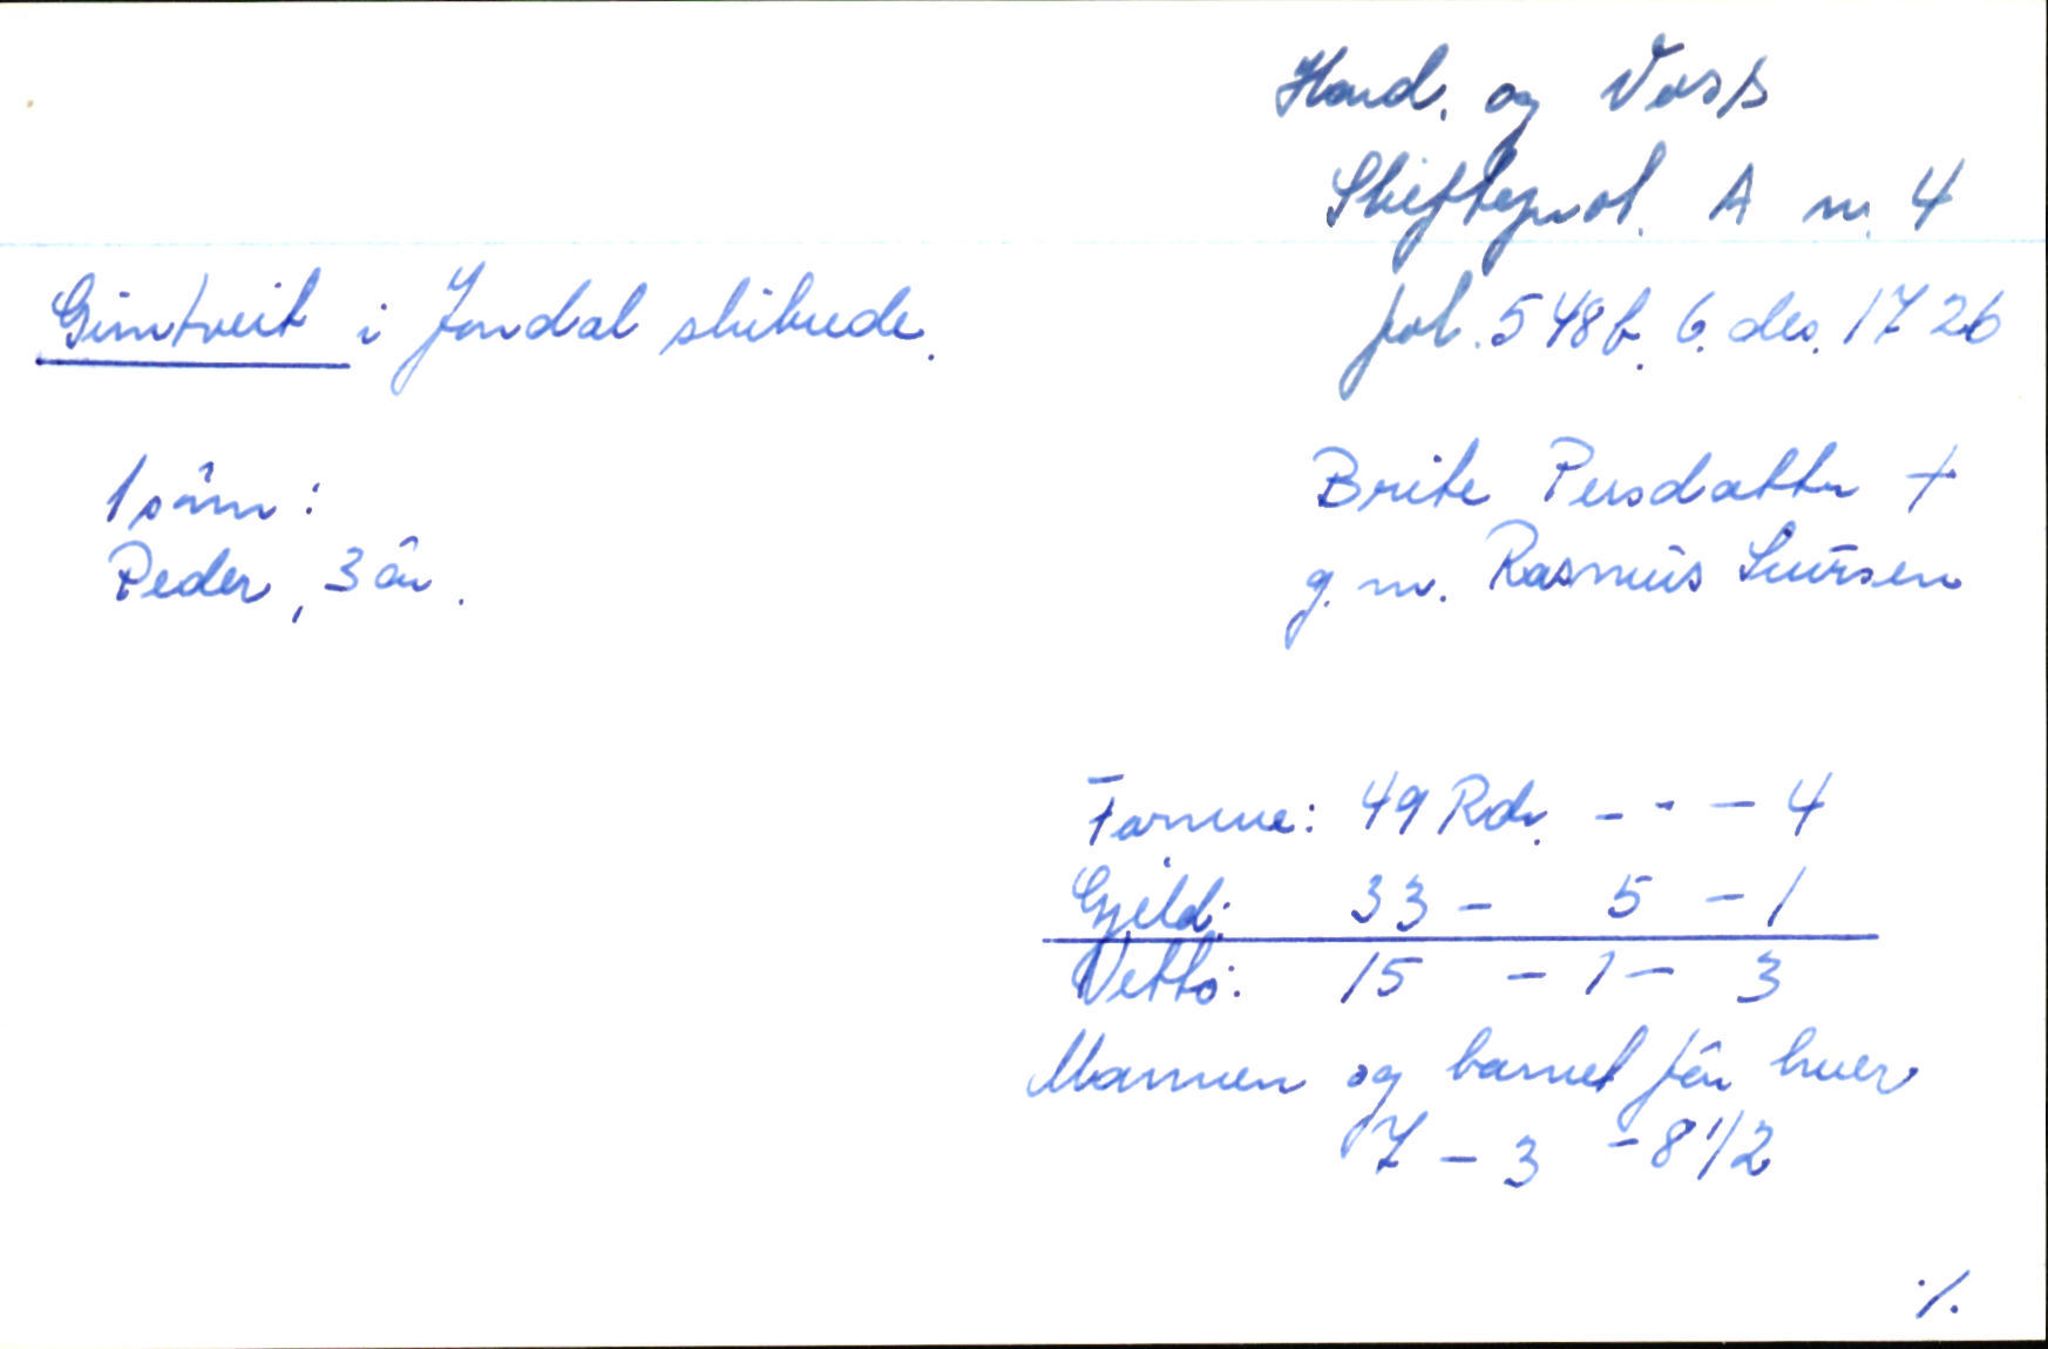 Hard. og Voss
Skifteprot. A nr. 4
Gimtveit i Jondal skibrede.
fol. 548b. 6. des. 1726
1 sønn:
Peder, 3 år.
Brite Persdatter +
g. m. Rasmus Siursen
Formue: 49 Rdr. - - - 4
Gjeld: 33 - 5 - 1
Netto: 15 - 1 - 3
Mannen og barnet får hver
7 - 3 - 8 1/2
·/.